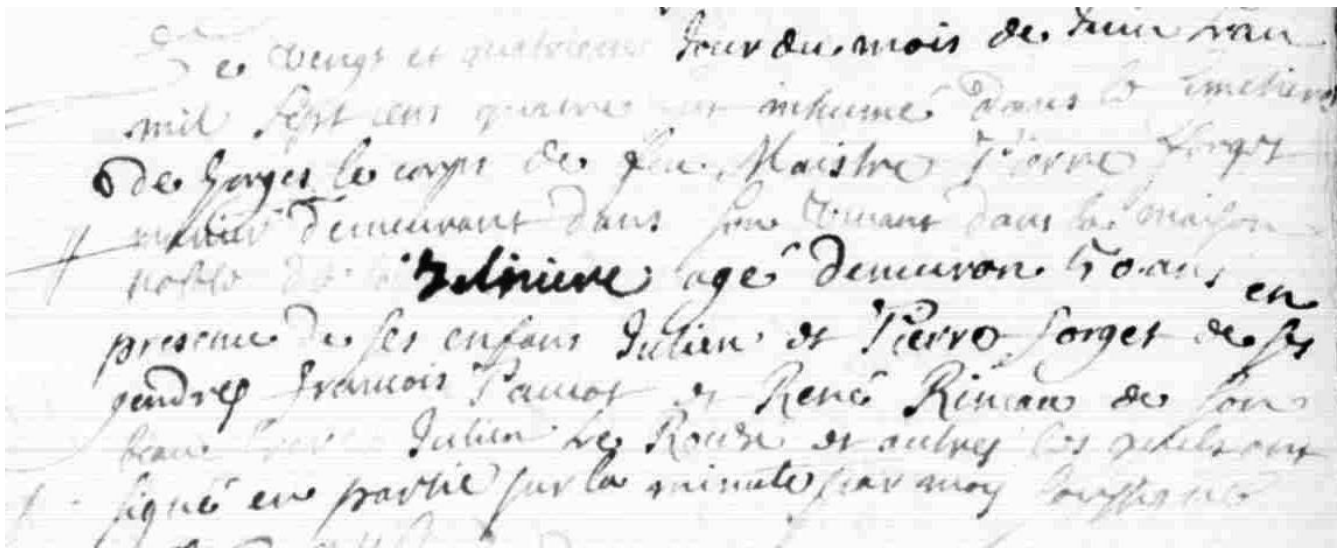 Le vingt et quatrieme jour du mois de Juin l'an
mil sept cens quinze est inhumé dans le Cimetiere
de Gorges le corps de feu Maistre Pierre Forget
demeurant dans son vivant dans la maison
noble de la age demeuron 50 ans en
presence de ses enfans Julien et Pierre forget de ses
gendres francois et René Rineau de son
beau frere Julien Le Roux et autres les quels ont
signé en partie sur la minute par moy soussigné